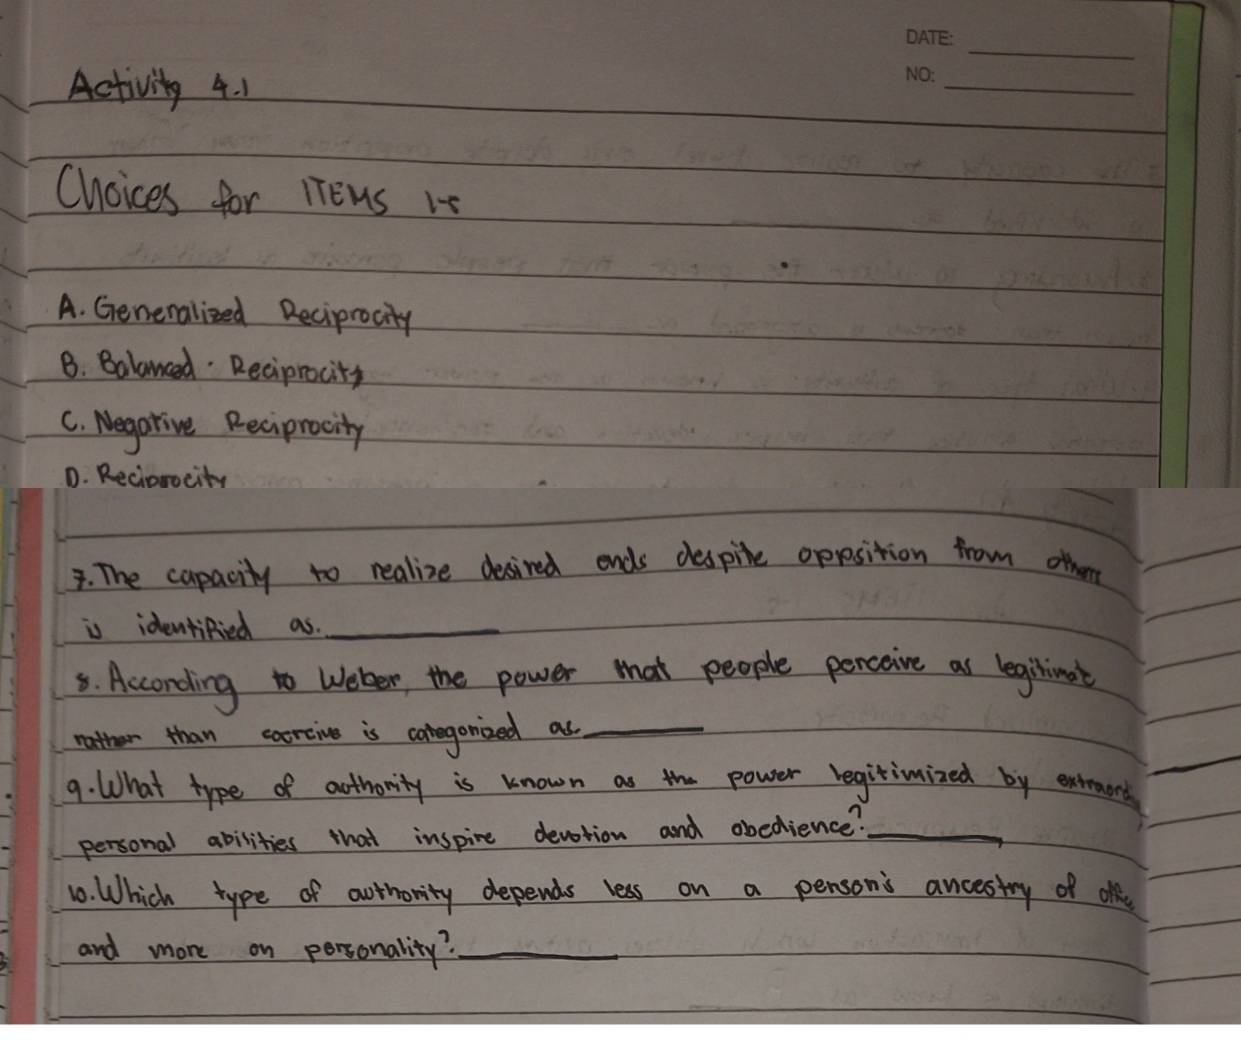 DATE:
NO:
Activity 4.1
Choices for ITEMS 1-5
A. Generalized Reciprocity
B. Balanced Reciprocity
C. Negative Reciprocity
D. Reciprocity
7. The capacity to realize desired ends despite opposition from others
is identified as.
8. According to Weber, the power that people perceive as legitimate
rather than coorcive is categorized as
9. What type of authority is known as the power legitimized by extraord
personal abilities that inspire devotion and obedience?
10. Which type of authority depends less on a person's ancestry of office
and more on personality?